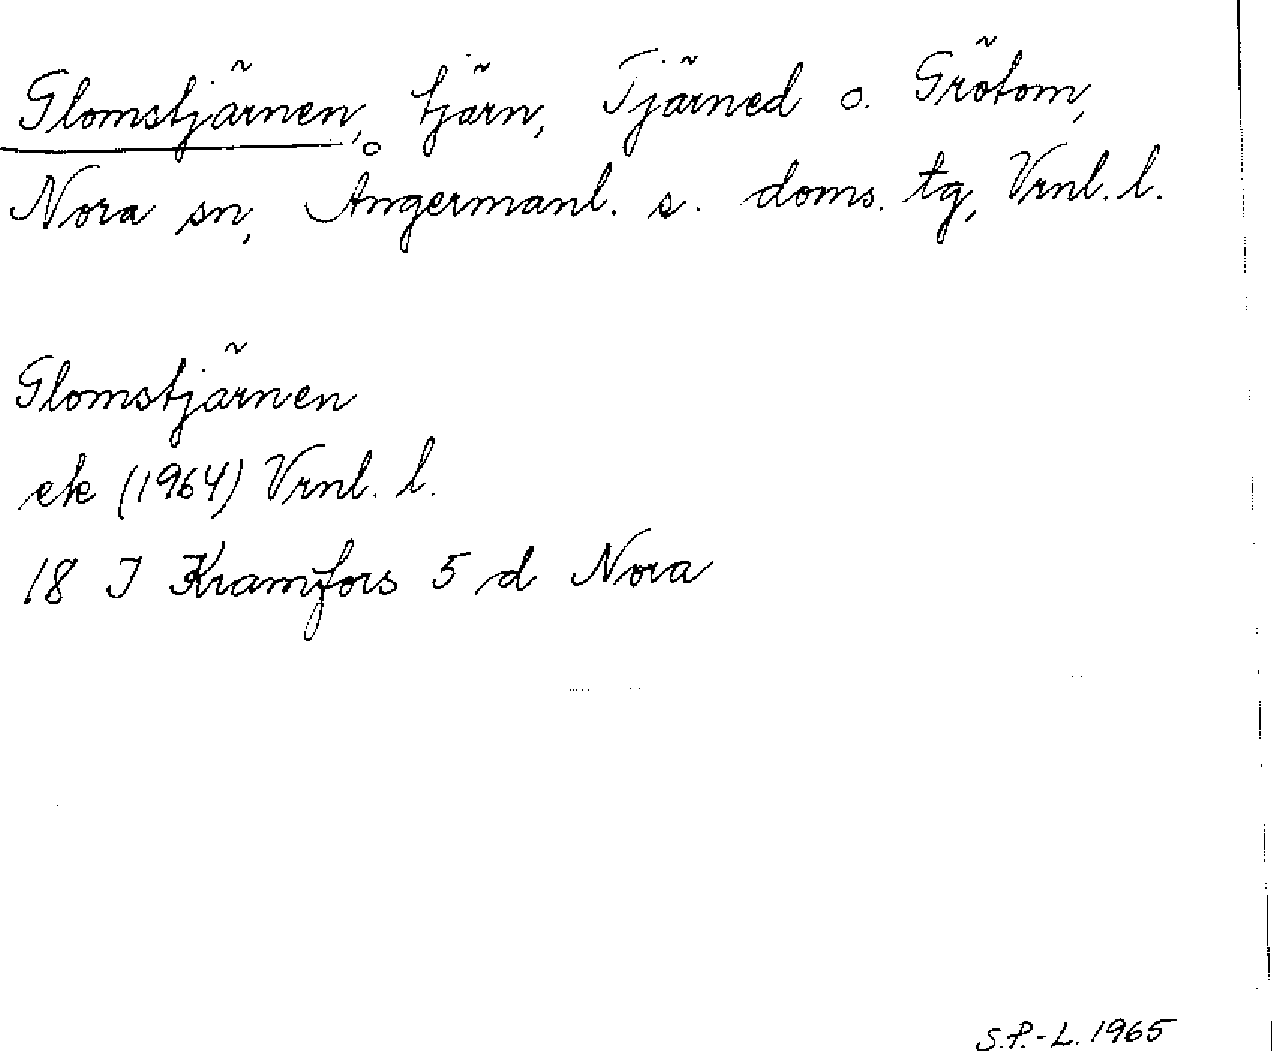 Glomstjärnen, tjärn, Tjärned o. Grötom,
Nora sn, Ångermanl. s. doms. tg, Vrnl. l.
Glomstjärnen
ek (1964) Vrnl. l.
18 I Kramfors 5 d Nora
S.P.-L. 1965